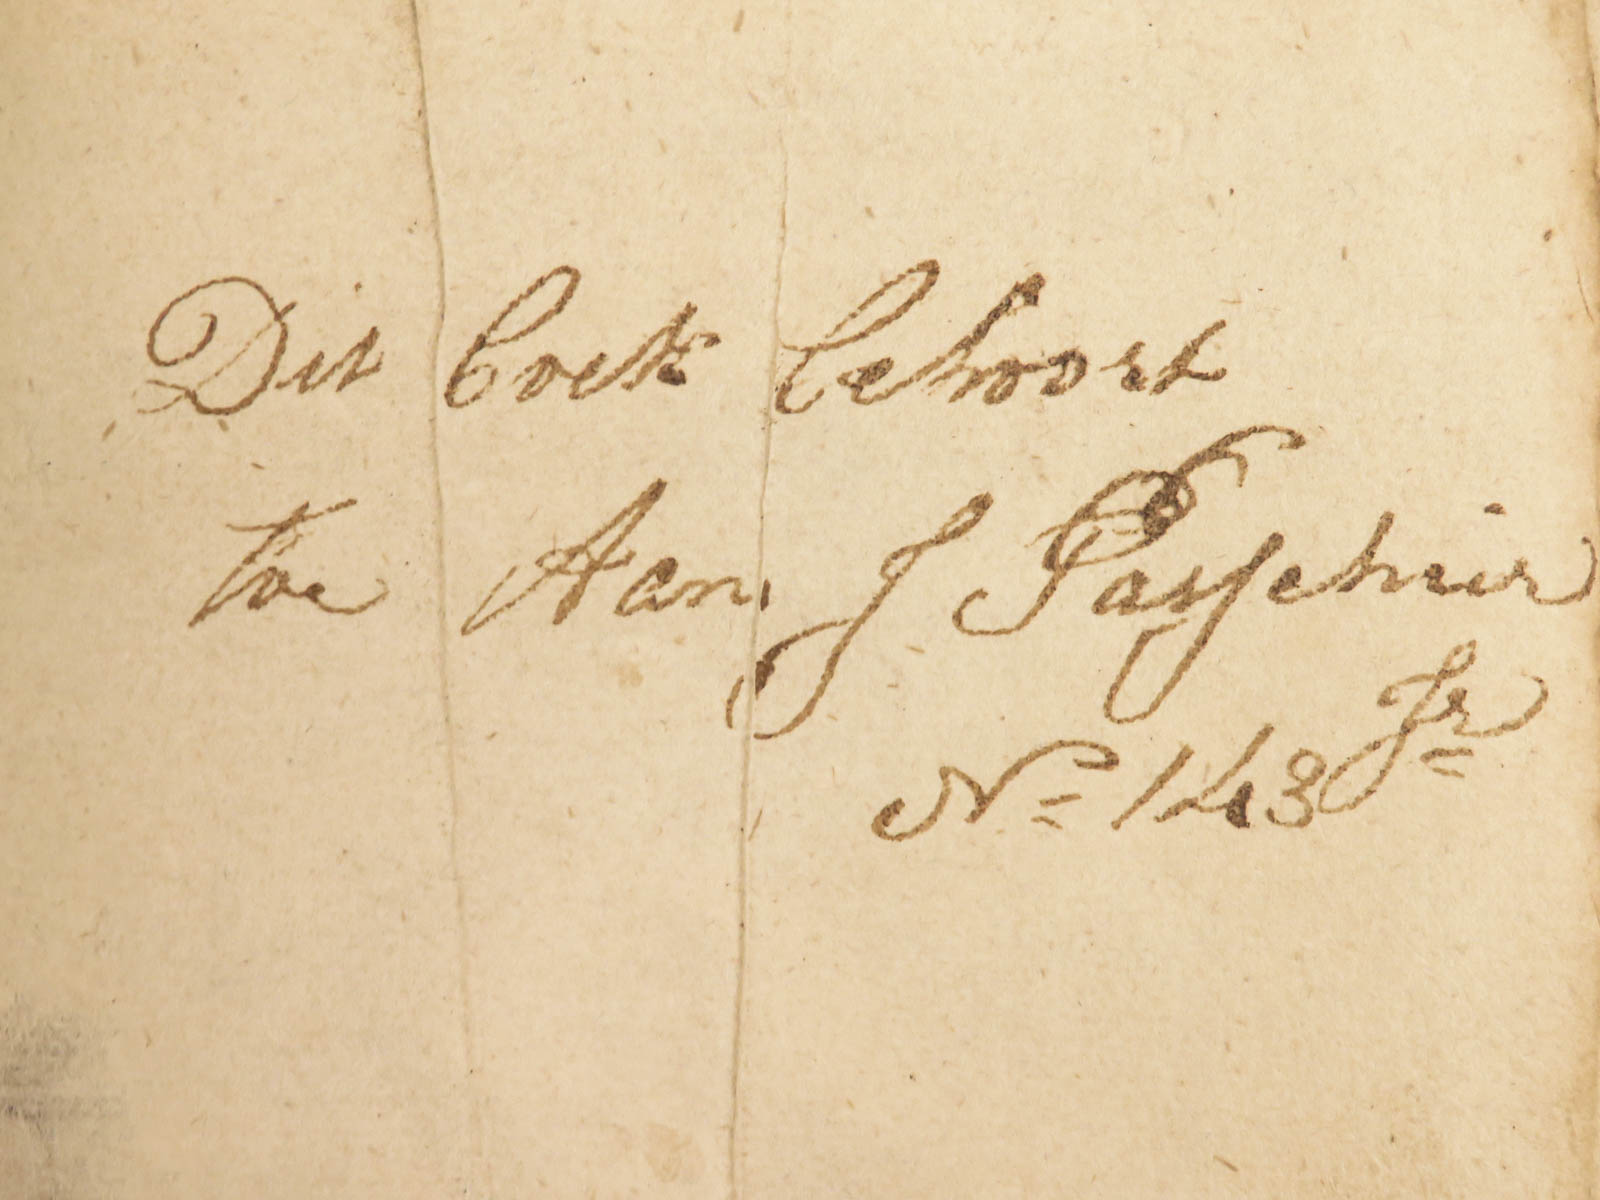 Dit boek behoort
toe Aan J Passchier
Jr
No 143